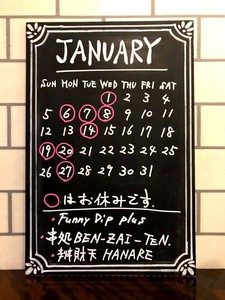 JANUARY
SUN MON TUE WED THU FRI SAT
1 2 3 4
5 6 7 8 9 10 11
12 13 14 15 16 17 18
19 20 21 22 23 24 25
26 27 28 29 30 31
○はお休みです。
・Funny Dip plus
・串処 BEN-ZAI-TEN.
・辨財下 HANARE